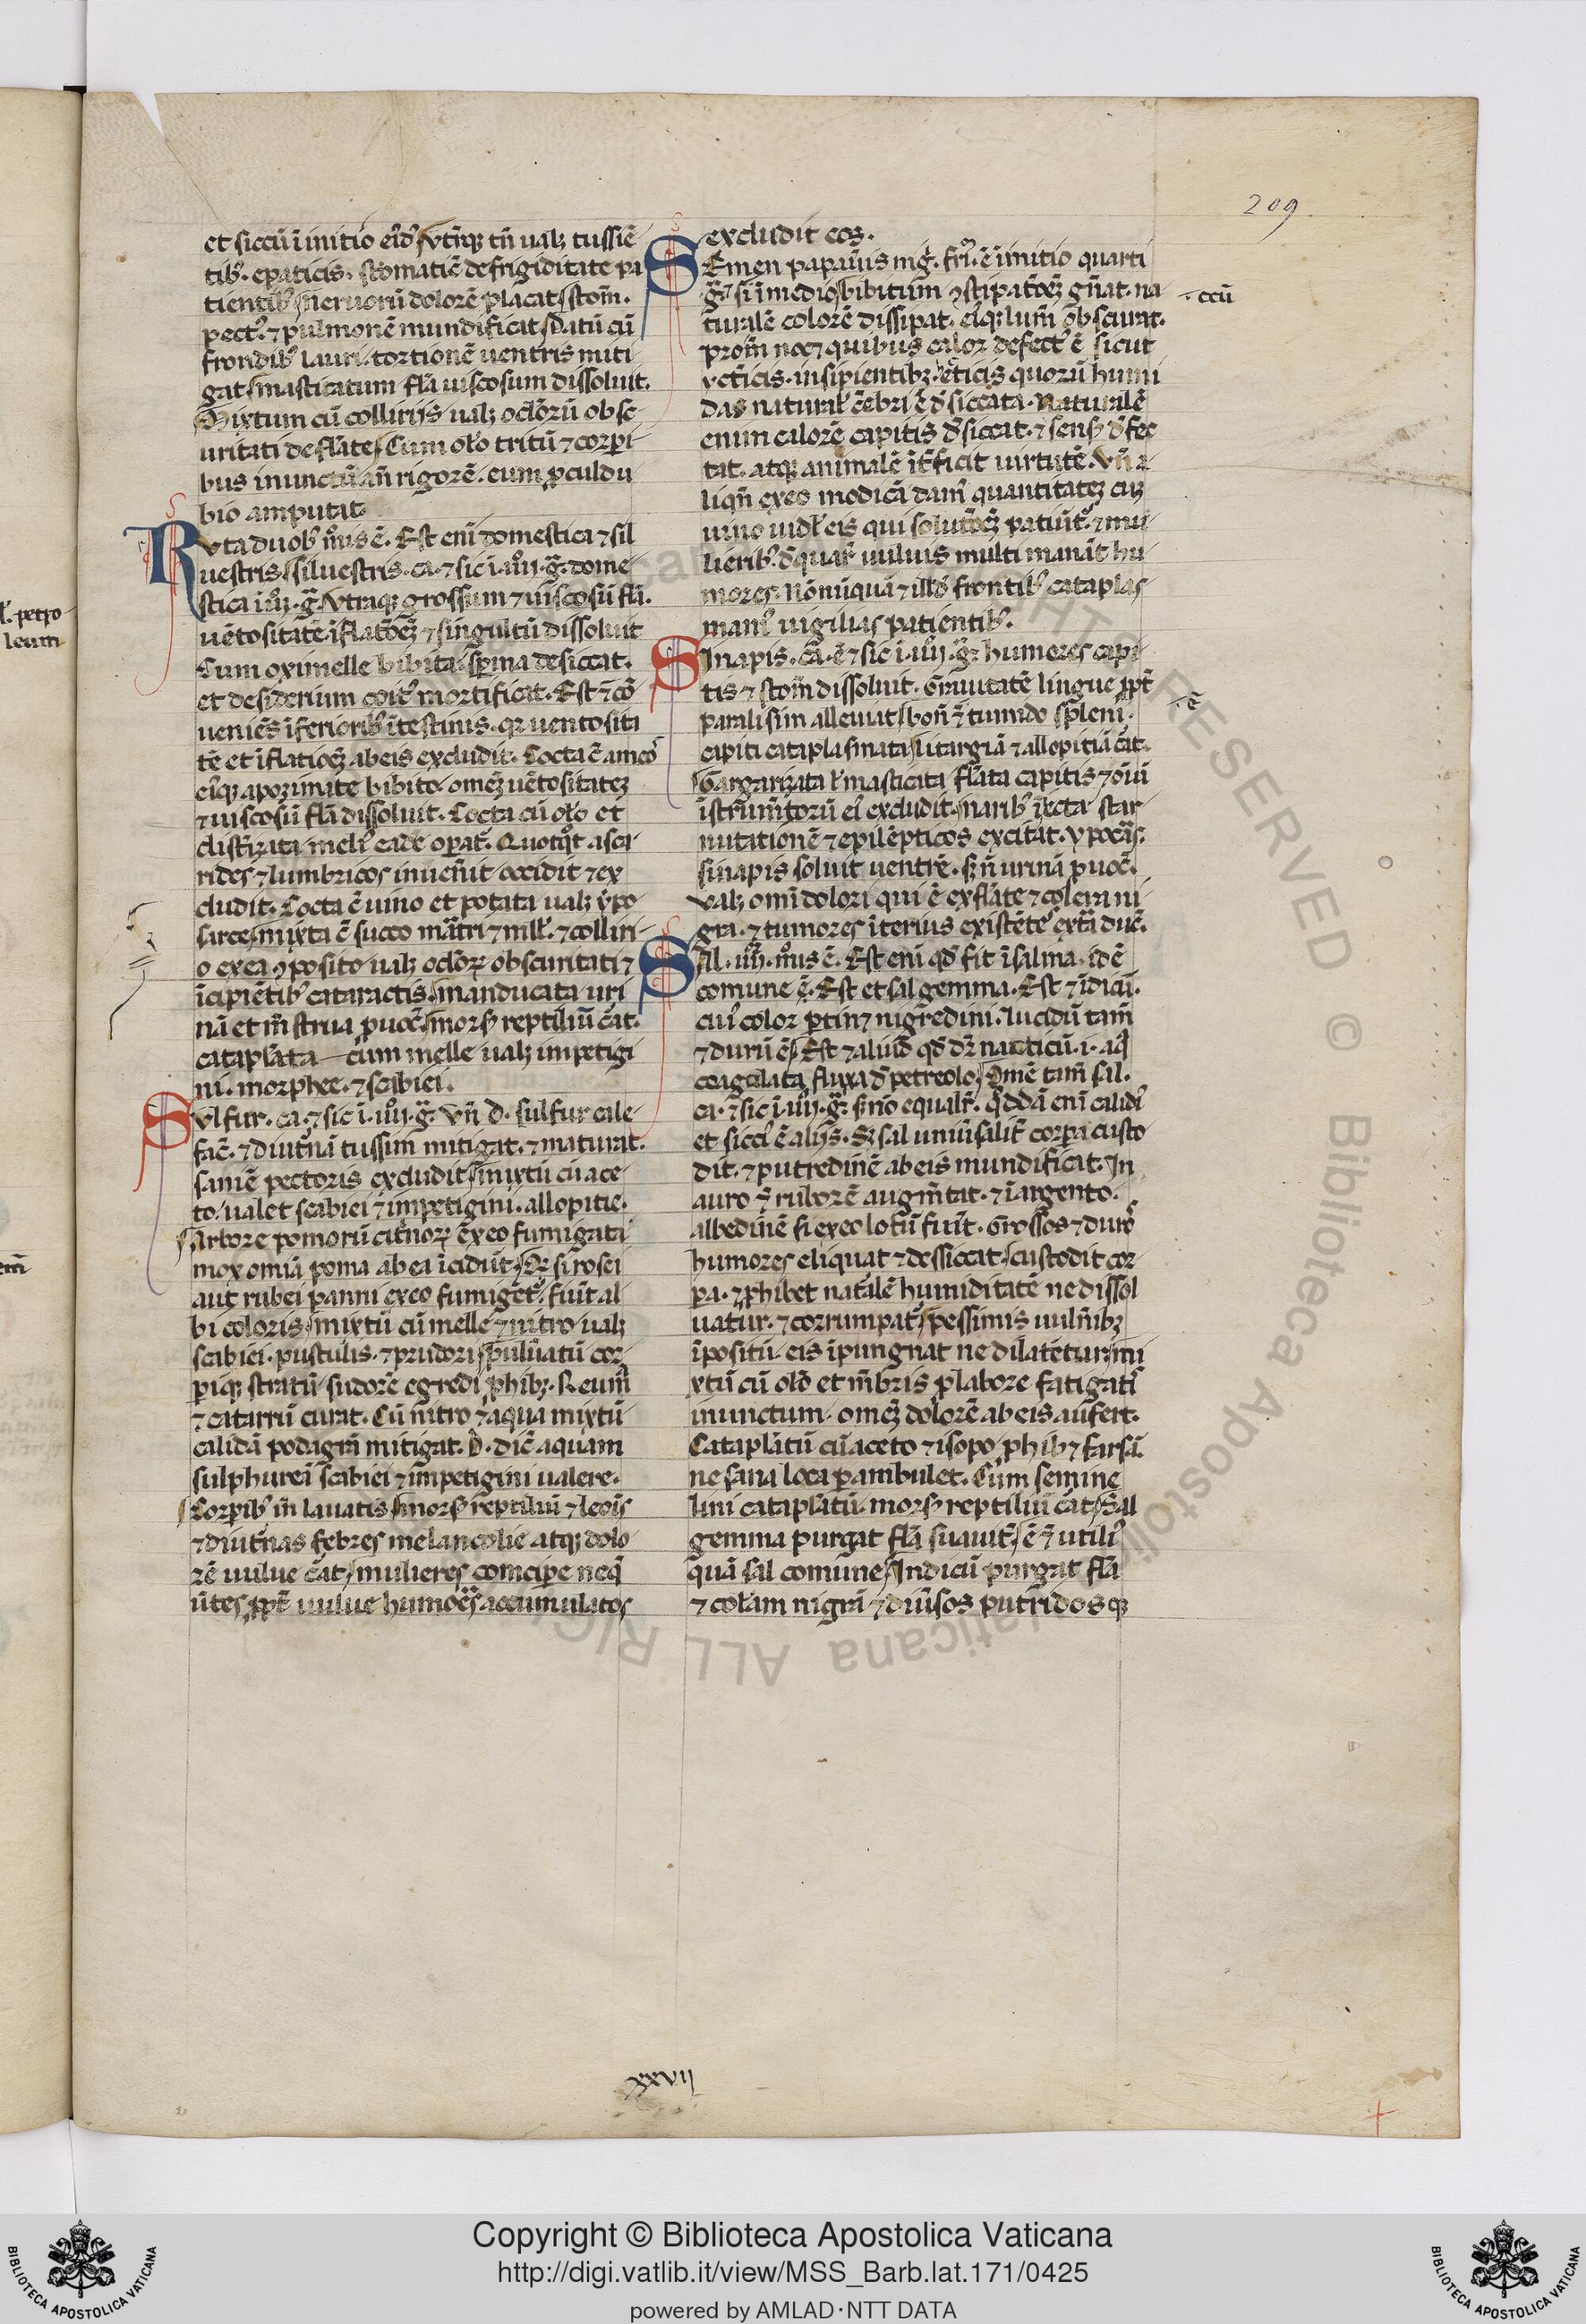 209
et siccū ī initio eiꝰdē utūqꝫ tn̄ ualꝫ tussiē
tibꝰ. epaticis. stomaticē de frigiditate pa
tientibꝰ neruorū dolorē placat stom̄.
pectꝰ. ⁊ pulmonē mundificat Datū cū
frondibꝰ lauri. tortionē uentris miti
gat masticatum fla̅ uiscosum dissoluit.
Mixtum cū collirijs ualꝫ oclōrū obsc
uritati de fla̅te Cum oło tritū ⁊ corpi
bus inunctū an̄ rigorē. eum ꝓculdu
bio amputat.
Ruta duobꝰ mōis ē. Est eni̅ domestica ⁊ sil
uestris. siluestris. ca. ⁊ sic̄ ī. iiijº. gͣ. dome
stica ī iijº. gͣ. Utraqꝫ grossum ⁊ uiscosū fla̅.
uētositatē īflatōeꝫ ⁊ singultū dissoluit
Cum oximelle bibita sperma desiccat.
et desiderium coitꝰ mortificat. Est ⁊ cō
ueniēs īferioribꝰ ītestinis. qꝛ uentosita
tē et īflatioeꝫ ab eis excludit. Cocta ē aneto
eiꝰqꝫ apozimate bibito. omeꝫ uētositateꝫ
⁊ uiscosū fla̅ dissoluit. Cocta cū oło et
clist̄izata melꝰ eadē opat᷑. Quotqͦt asca
rides ⁊ lumbricos inuen̄it occidit ⁊ ex
cludit. Cocta ē uino et potata ualꝫ ypo
sarce mixta ē succo mar̄tri ⁊ mll̄. ⁊ colliri
o ex ea ꝯposito ualꝫ oclōꝝ obscuritati ⁊
īcipiētibꝰ cataractis. manducata uri
nā et mēstrua ꝓuoc̄. morsꝰ reptiliū c̄at.
catapla̅ta cum melle ualꝫ impetigi
ni. morphee. ⁊ scabiei.
Sulfur. ca. ⁊ sic̄ ī. iiijº. gͣ. Un̄ D. sulfur cale
fac̄. ⁊ diut̄nā tussim mitigat. ⁊ maturat.
saniē pectoris excludit mixtū cū ace
to. ualet scabiei ⁊ impetigini. allopitie.
Arbore pomorū citn̄oꝝ ē ex eo fumigata
mox omīa poma ab ea īcidūt. Et si rosei
aut rubei panni ex eo fumigēt᷑. fiūt al
bi coloris mixtū cū melle ⁊ nitro ualꝫ
scabiei. pustulis. ⁊ prudori puluatū cor
piqꝫ stratū sudorē egredi phibꝫ. Reuma
⁊ catarrū curat. Cū nitro ⁊ aqua mixtū
calida podagrā mitigat. D. dic̄ aquam
sulphureā scabiei ⁊ impetigini ualere.
Corpibꝰ in̄ lauatis morsꝰ reptiliū ⁊ leōis
⁊ diut̄nas febres melancolie atqꝫ dolo
rē uulue c̄at mulieres concipe neqͣ
ūtes ꝓpt̄ uulue humōes accumulatos
excludit eos.
Semen papaūis nigͥ. friꝰ. ē ī initio quarti
gͣ. sic̄ ī medio bibitum ⁊stipatōeꝫ gn̄at. na
turalē colorē dissipat. eiꝰqꝫ lum̄ obscurat.
prom̄ noc⁊ quibus calor defectꝰ ē sicut
vet̄icis. insipientibꝫ. eticis quorū humi
das natural̄ cēbri ē dͤsiccata. Naturalē
enim calorē capitis dͤsiccat. ⁊ sensꝰ dͤfec
tat. atqꝫ animalē īt̄ficit uirtutē. Un̄ a
liqn̄ ex eo modicā damꝰ quantitateꝫ cuꝫ
uino uidꝫ eis qui solutōeꝫ patiūt᷑. ⁊ mu
lieribꝰ. dͤ quaꝝ uuluis multi manāt hu
mores. Nōnūquā ⁊ illiꝰ frontibꝰ cataplas
mamꝰ uigilias patientibꝰ.
Sinapis. cā. ē ⁊ sic̄ ī. iiijº. gͣ. humores capi
tis ⁊ stom̄ dissoluit. Grauitatē lingue ꝓpt̄
paralisim alleuiat bon̄ ē tumido spleni.
capiti cataplasmata litargiā ⁊ allopitiā c̄at.
Gargarizata ł masticata fla̅ta capitis ⁊ oīu̅
īstrum̄torū eiꝰ excludit. naribꝰ īiecta ster
nutationē ⁊ epilēpticos excitat. ypocͣs.
sinapis soluit uentrē. sꝫ n̄ urinā puoc̄.
Ualꝫ omi̅ dolori qui ē ex fla̅te ⁊ colera ni
gra. ⁊ tumores īterius existētes ext̄a duc̄.
Sal. iiij. mōis ē. Est eni̅ qd̄ fit ī salina. id ē
comune ē. Est et sal gemma. Est ⁊ īdicū.
cuiꝰ color ꝑtinꝫ nigredini. lucidū tam̄
⁊ durū ē Est ⁊ aliud qd̄ dr̄ nauticū. i. aqͣ
coagulata fluxa dͤ petreolo Omē tam̄ sal.
ca. ⁊ sic̄ ī. iiijº. gͣ. sꝫ n̄o equalr̄. qͦddā eni̅ calidiꝰ
et sicciꝰ ē alijs. Sꝫ sal uniūsalit̄ corpa custo
dit. ⁊ putredinē ab eis mundificat. In
auro ⁊ ruborē augm̄tat. ⁊ ī argento.
albedinē si ex eo lotū fuit̄. Grossos ⁊ duros
humores eliquat ⁊ dessiccat custodit cor
pa. ⁊ ꝓhibet natālē humiditatē ne dissol
uatur. ⁊ corrumpat᷑ pessimis uuln̄ibꝫ
īpositū eis īpungnat ne dilatētur mi
xtū cū oło et mēbris ꝑ labore fatigatis
inunctum. omeꝫ dolorē ab eis aufert.
Catapla̅tū cū aceto ⁊ isopo ꝓhibꝫ farsā.
ne sana loca ꝑambulet. Cum semine
lini catapla̅tū. morsꝰ reptiliū c̄at Sal
gemma purgat fla̅ suauit̄ ē ⁊ utiliꝰ
quā sal comune Indicū purgat fla̅
⁊ col̄am nigrā ⁊ diuersos putridosqꝫ
.ccū
.ē
ł. petro
leum
xxvii
Copyright © Biblioteca Apostolica Vaticana
http://digi.vatlib.it/view/MSS_Barb.lat.171/0425
powered by AMLAD·NTT DATA
BIBLIOTECA APOSTOLICA VATICANA
BIBLIOTECA APOSTOLICA VATICANA